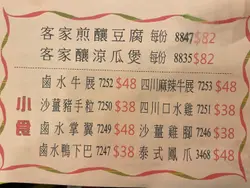 客家煎釀豆腐 每份 8847 $82
客家釀涼瓜煲 每份 8835 $82
小食
鹵水牛展 7252 $48 四川麻辣牛展 7253 $48
沙薑豬手粒 7250 $38 四川口水雞 7251 $38
鹵水掌翼 7249 $48 沙薑雞腳 7246 $38
鹵水鴨下巴 7247 $38 泰式鳳爪 3468 $48